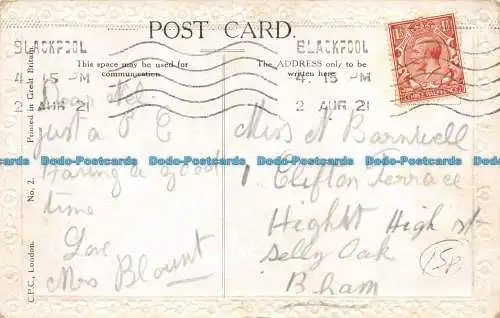 POST CARD.
BLACKPOOL
4. 15 PM
2 AUG 21
BLACKPOOL
4. 15 PM
2 AUG 21
This space may be used for
communication.
The ADDRESS only to be
written here.
Printed in Great Britain.
No. 2.
C.P.C., London.
Dear Nel
just a P C
Having a good
time
Love
Mrs Blount
Miss N Barnwell
1 Clifton Terrace
Hight High St
Selly Oak
B.ham
15p
Dodo-Postcards Dodo-Postcards Dodo-Postcards Dodo-Postcards
Dodo-Postcards Dodo-Postcards Dodo-Postcards Dodo-Postcards